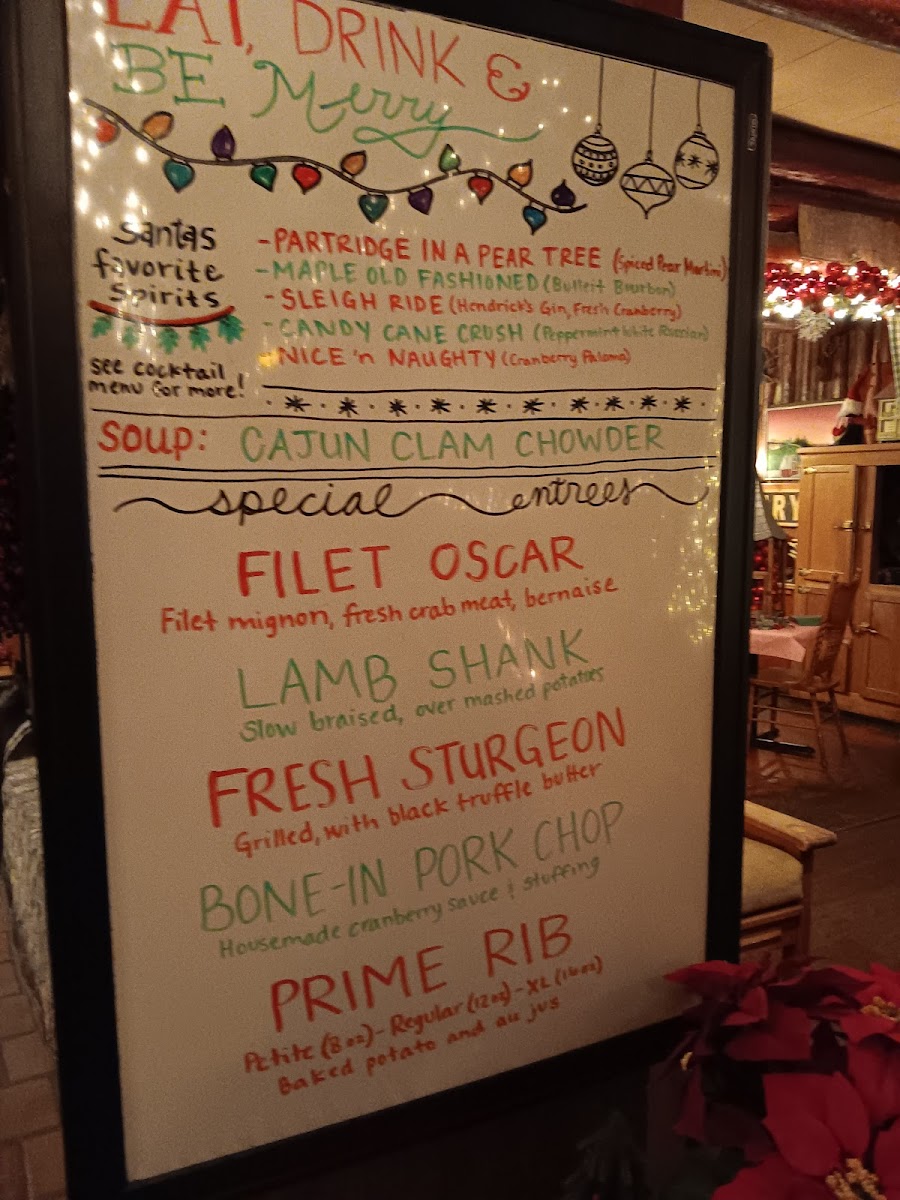 EAT, DRINK &
BE Merry
santas
favorite
spirits
see cocktail
menu for more!
-PARTRIDGE IN A PEAR TREE (Spiced Pear Martini)
-MAPLE OLD FASHIONED (Bulleit Bourbon)
-SLEIGH RIDE (Hendrick's Gin, Fresh Cranberry)
-CANDY CANE CRUSH (Peppermint White Russian)
-NICE 'n NAUGHTY (Cranberry Paloma)
SOUP: CAJUN CLAM CHOWDER
special entrees
FILET OSCAR
Filet mignon, fresh crab meat, bernaise
LAMB SHANK
Slow braised, over mashed potatoes
FRESH STURGEON
Grilled, with black truffle butter
BONE-IN PORK CHOP
Housemade cranberry sauce & stuffing
PRIME RIB
Petite (8oz) - Regular (12oz) - XL (16oz)
Baked potato and au jus
RY